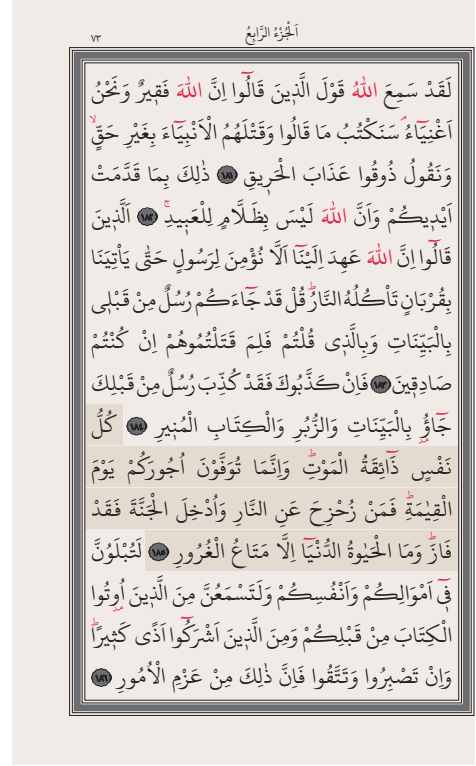 ٧٣
اَلْجُزْءُ الرَّابِعُ
لَقَدْ سَمِعَ اللّٰهُ قَوْلَ الَّذ۪ينَ قَالُٓوا اِنَّ اللّٰهَ فَق۪يرٌ وَنَحْنُ
اَغْنِيَٓاءُۢ سَنَكْتُبُ مَا قَالُوا وَقَتْلَهُمُ الْاَنْبِيَٓاءَ بِغَيْرِ حَقٍّۙ
وَنَقُولُ ذُوقُوا عَذَابَ الْحَر۪يقِ ﴿١٨١﴾ ذٰلِكَ بِمَا قَدَّمَتْ
اَيْد۪يكُمْ وَاَنَّ اللّٰهَ لَيْسَ بِظَلَّامٍ لِلْعَب۪يدِۚ ﴿١٨٢﴾ اَلَّذ۪ينَ
قَالُٓوا اِنَّ اللّٰهَ عَهِدَ اِلَيْنَٓا اَلَّا نُؤْمِنَ لِرَسُولٍ حَتّٰى يَأْتِيَنَا
بِقُرْبَانٍ تَأْكُلُهُ النَّارُۜ قُلْ قَدْ جَٓاءَكُمْ رُسُلٌ مِنْ قَبْل۪ي
بِالْبَيِّنَاتِ وَبِالَّذ۪ي قُلْتُمْ فَلِمَ قَتَلْتُمُوهُمْ اِنْ كُنْتُمْ
صَادِق۪ينَ ﴿١٨٣﴾ فَاِنْ كَذَّبُوكَ فَقَدْ كُذِّبَ رُسُلٌ مِنْ قَبْلِكَ
جَٓاؤُ۫ بِالْبَيِّنَاتِ وَالزُّبُرِ وَالْكِتَابِ الْمُن۪يرِ ﴿١٨٤﴾ كُلُّ
نَفْسٍ ذَٓائِقَةُ الْمَوْتِۜ وَاِنَّمَا تُوَفَّوْنَ اُجُورَكُمْ يَوْمَ
الْقِيٰمَةِۜ فَمَنْ زُحْزِحَ عَنِ النَّارِ وَاُدْخِلَ الْجَنَّةَ فَقَدْ
فَازَۜ وَمَا الْحَيٰوةُ الدُّنْيَٓا اِلَّا مَتَاعُ الْغُرُورِ ﴿١٨٥﴾ لَتُبْلَوُنَّ
ف۪ٓي اَمْوَالِكُمْ وَاَنْفُسِكُمْ وَلَتَسْمَعُنَّ مِنَ الَّذ۪ينَ اُو۫تُوا
الْكِتَابَ مِنْ قَبْلِكُمْ وَمِنَ الَّذ۪ينَ اَشْرَكُٓوا اَذًى كَث۪يرًاۜ
وَاِنْ تَصْبِرُوا وَتَتَّقُوا فَاِنَّ ذٰلِكَ مِنْ عَزْمِ الْاُمُورِ ﴿١٨٦﴾